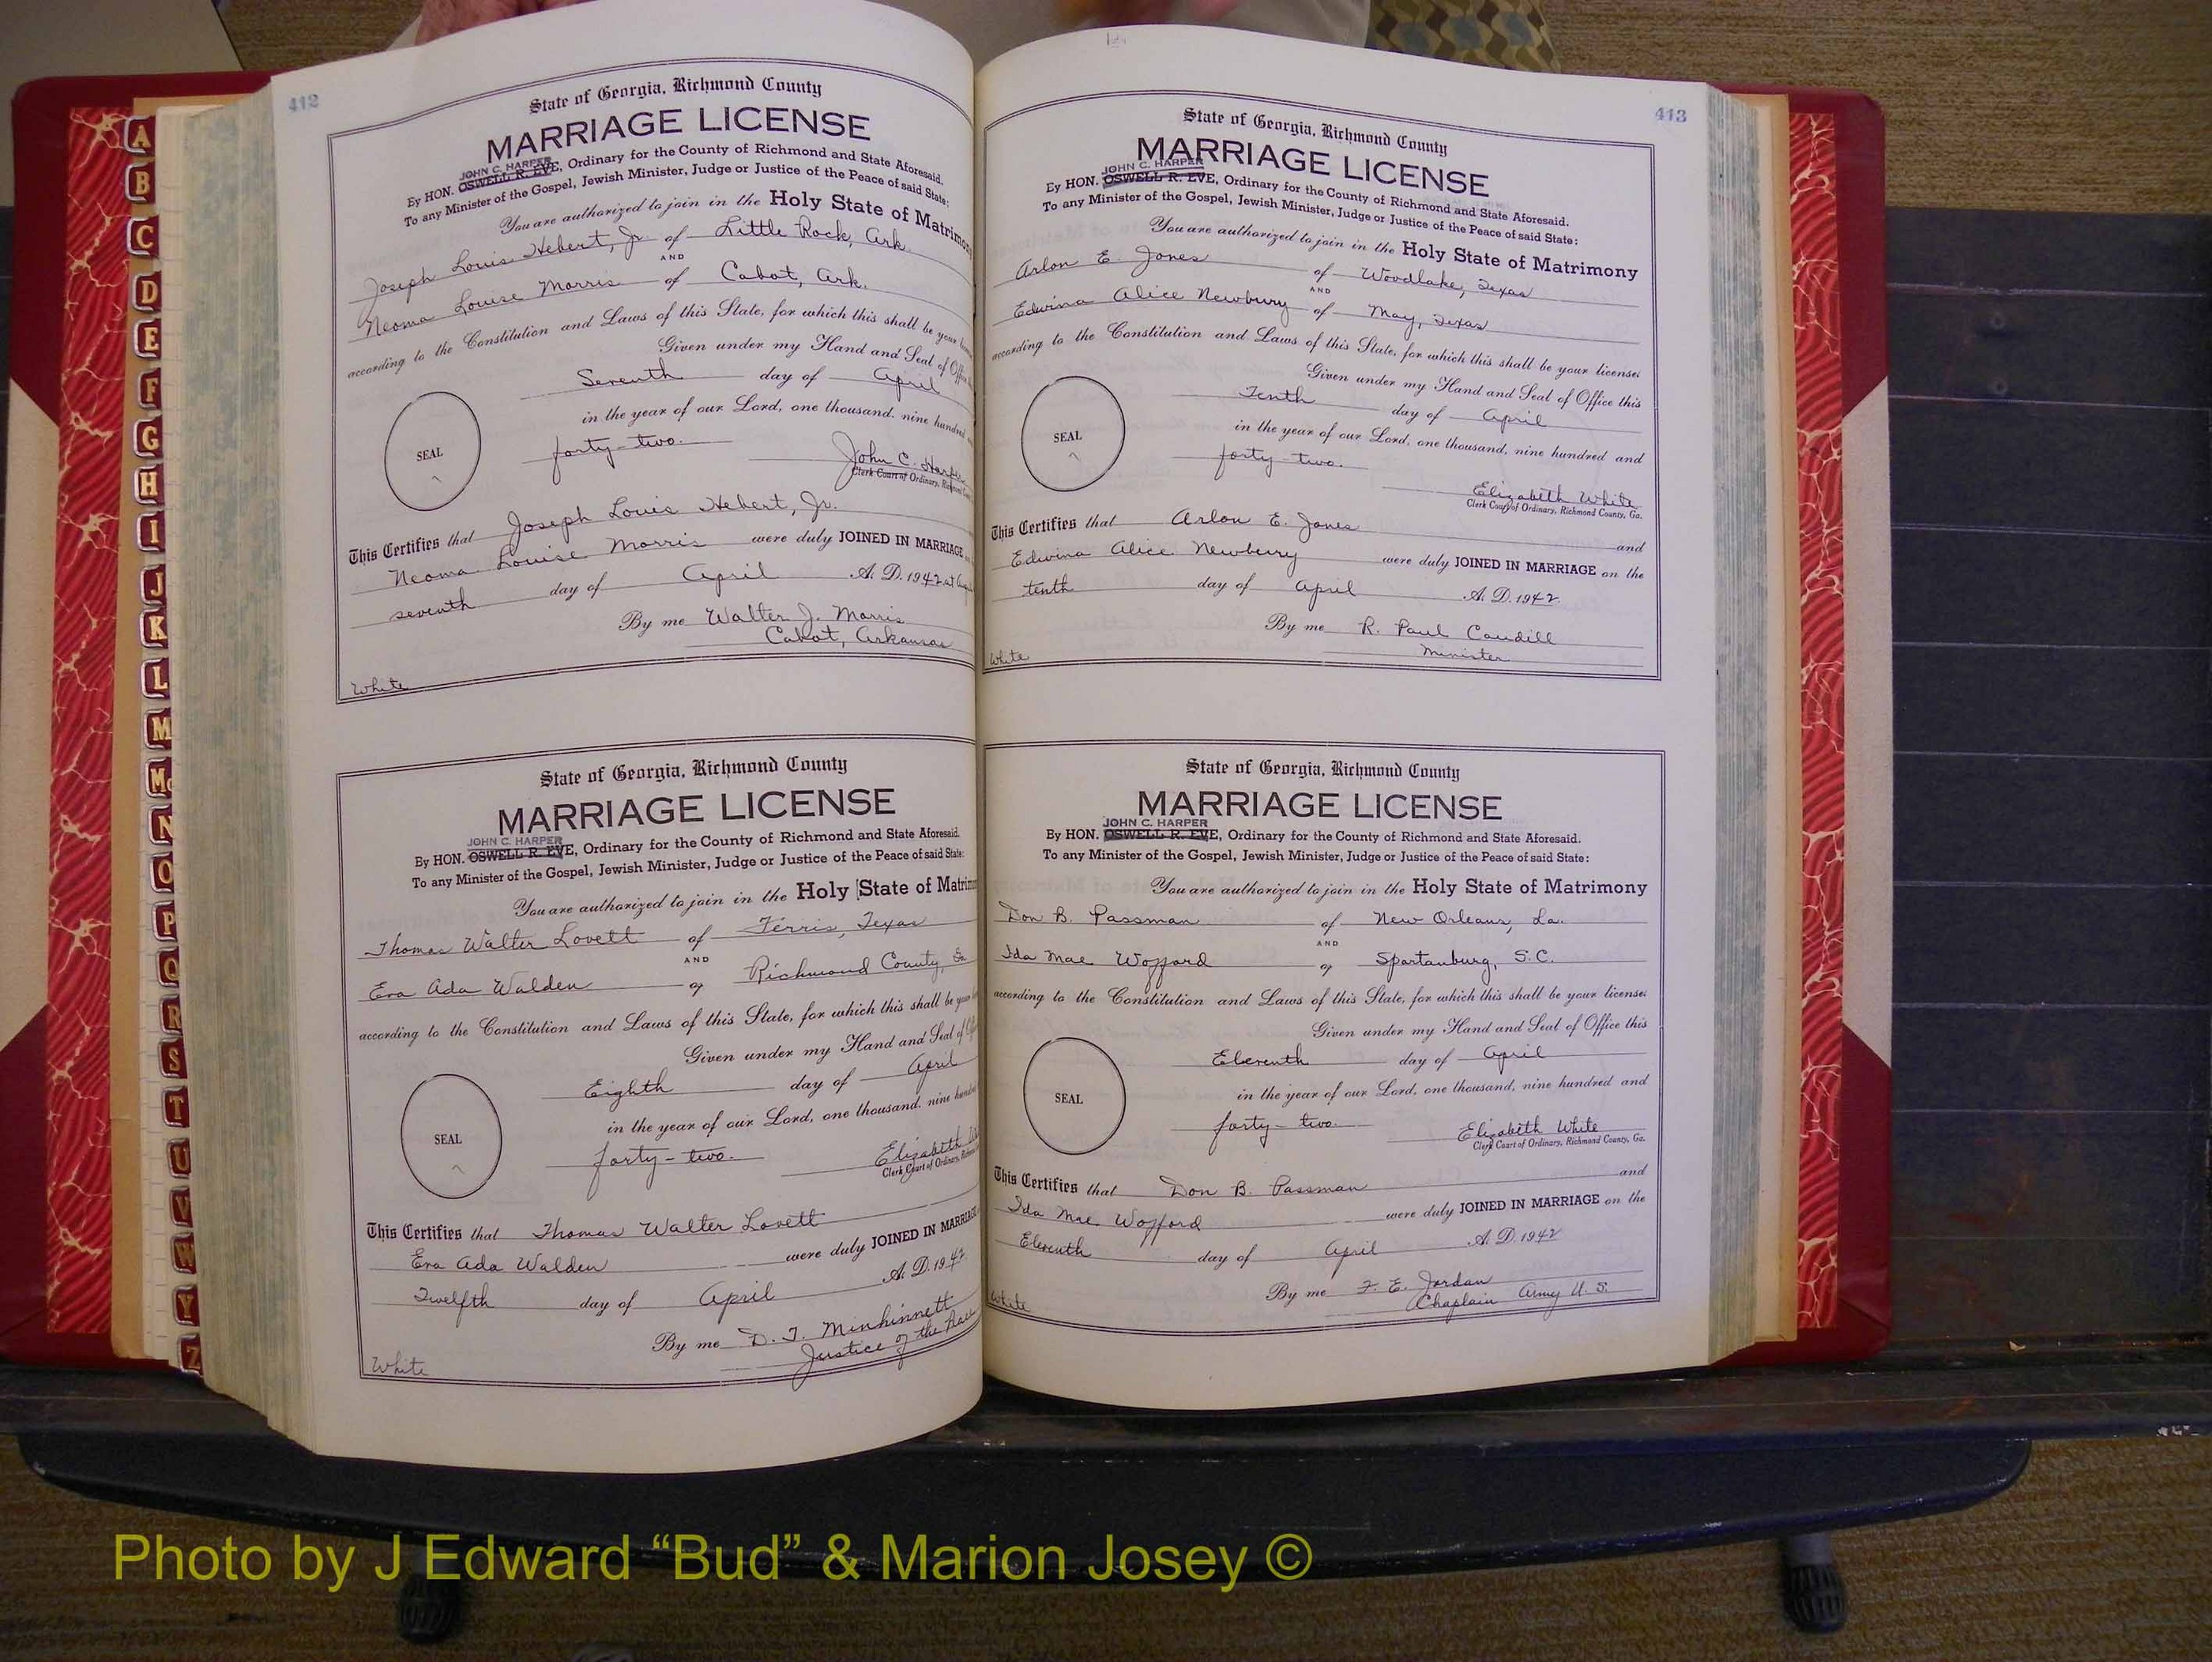 412
State of Georgia, Richmond County
MARRIAGE LICENSE
JOHN C. HARPER
By HON. OSWELL R. EVE, Ordinary for the County of Richmond and State Aforesaid.
To any Minister of the Gospel, Jewish Minister, Judge or Justice of the Peace of said State:
You are authorized to join in the Holy State of Matrimony
Joseph Louis Hebert, Jr. of Little Rock, Ark.
AND
Neoma Louise Morris of Cabot, Ark.
according to the Constitution and Laws of this State, for which this shall be your
Given under my Hand and Seal of Office
Seventh day of April
in the year of our Lord, one thousand, nine hundred
forty-two.
SEAL
John C. Harper
Clerk Court of Ordinary,
This Certifies that Joseph Louis Hebert, Jr.
Neoma Louise Morris were duly JOINED IN MARRIAGE
seventh day of April A. D. 1942 at
By me Walter J. Morris
Cabot, Arkansas
White
State of Georgia, Richmond County
MARRIAGE LICENSE
JOHN C. HARPER
By HON. OSWELL R. EVE, Ordinary for the County of Richmond and State Aforesaid.
To any Minister of the Gospel, Jewish Minister, Judge or Justice of the Peace of said State:
You are authorized to join in the Holy State of
Thomas Walter Lovett of Ferris, Texas
AND
Eva Ada Walden of Richmond County, Ga
according to the Constitution and Laws of this State, for which this shall be your
Given under my Hand and Seal of
Eighth day of April
in the year of our Lord, one thousand, nine
forty-two.
SEAL
Elizabeth
Clerk Court of Ordinary,
This Certifies that Thomas Walter Lovett
Eva Ada Walden were duly JOINED IN MARRIAGE
Twelfth day of April A. D. 1942
By me D. T. Minhinnett
Justice of the Peace
White
413
State of Georgia, Richmond County
MARRIAGE LICENSE
JOHN C. HARPER
By HON. OSWELL R. EVE, Ordinary for the County of Richmond and State Aforesaid.
To any Minister of the Gospel, Jewish Minister, Judge or Justice of the Peace of said State:
You are authorized to join in the Holy State of Matrimony
Arlon E. Jones of Woodlake, Texas
AND
Edwina Alice Newbury of May, Texas
according to the Constitution and Laws of this State, for which this shall be your license:
Given under my Hand and Seal of Office this
Tenth day of April
in the year of our Lord, one thousand, nine hundred and
forty-two.
SEAL
Elizabeth White
Clerk Court of Ordinary, Richmond County, Ga.
This Certifies that Arlon E. Jones and
Edwina Alice Newbury were duly JOINED IN MARRIAGE on the
tenth day of April A. D. 1942.
By me R. Paul Caudill
Minister
White
State of Georgia, Richmond County
MARRIAGE LICENSE
JOHN C. HARPER
By HON. OSWELL R. EVE, Ordinary for the County of Richmond and State Aforesaid.
To any Minister of the Gospel, Jewish Minister, Judge or Justice of the Peace of said State:
You are authorized to join in the Holy State of Matrimony
Don B. Passman of New Orleans, La.
AND
Ida Mae Wofford of Spartanburg, S.C.
according to the Constitution and Laws of this State, for which this shall be your license:
Given under my Hand and Seal of Office this
Eleventh day of April
in the year of our Lord, one thousand, nine hundred and
forty-two.
SEAL
Elizabeth White
Clerk Court of Ordinary, Richmond County, Ga.
This Certifies that Don B. Passman and
Ida Mae Wofford were duly JOINED IN MARRIAGE on the
Eleventh day of April A. D. 1942
By me F. E. Jordan
Chaplain Army U. S.
White
A
B
C
D
E
F
G
H
I
J
K
L
M
Mc
N
O
P
Q
R
S
T
U
V
W
Y
Z
Photo by J Edward “Bud” & Marion Josey ©